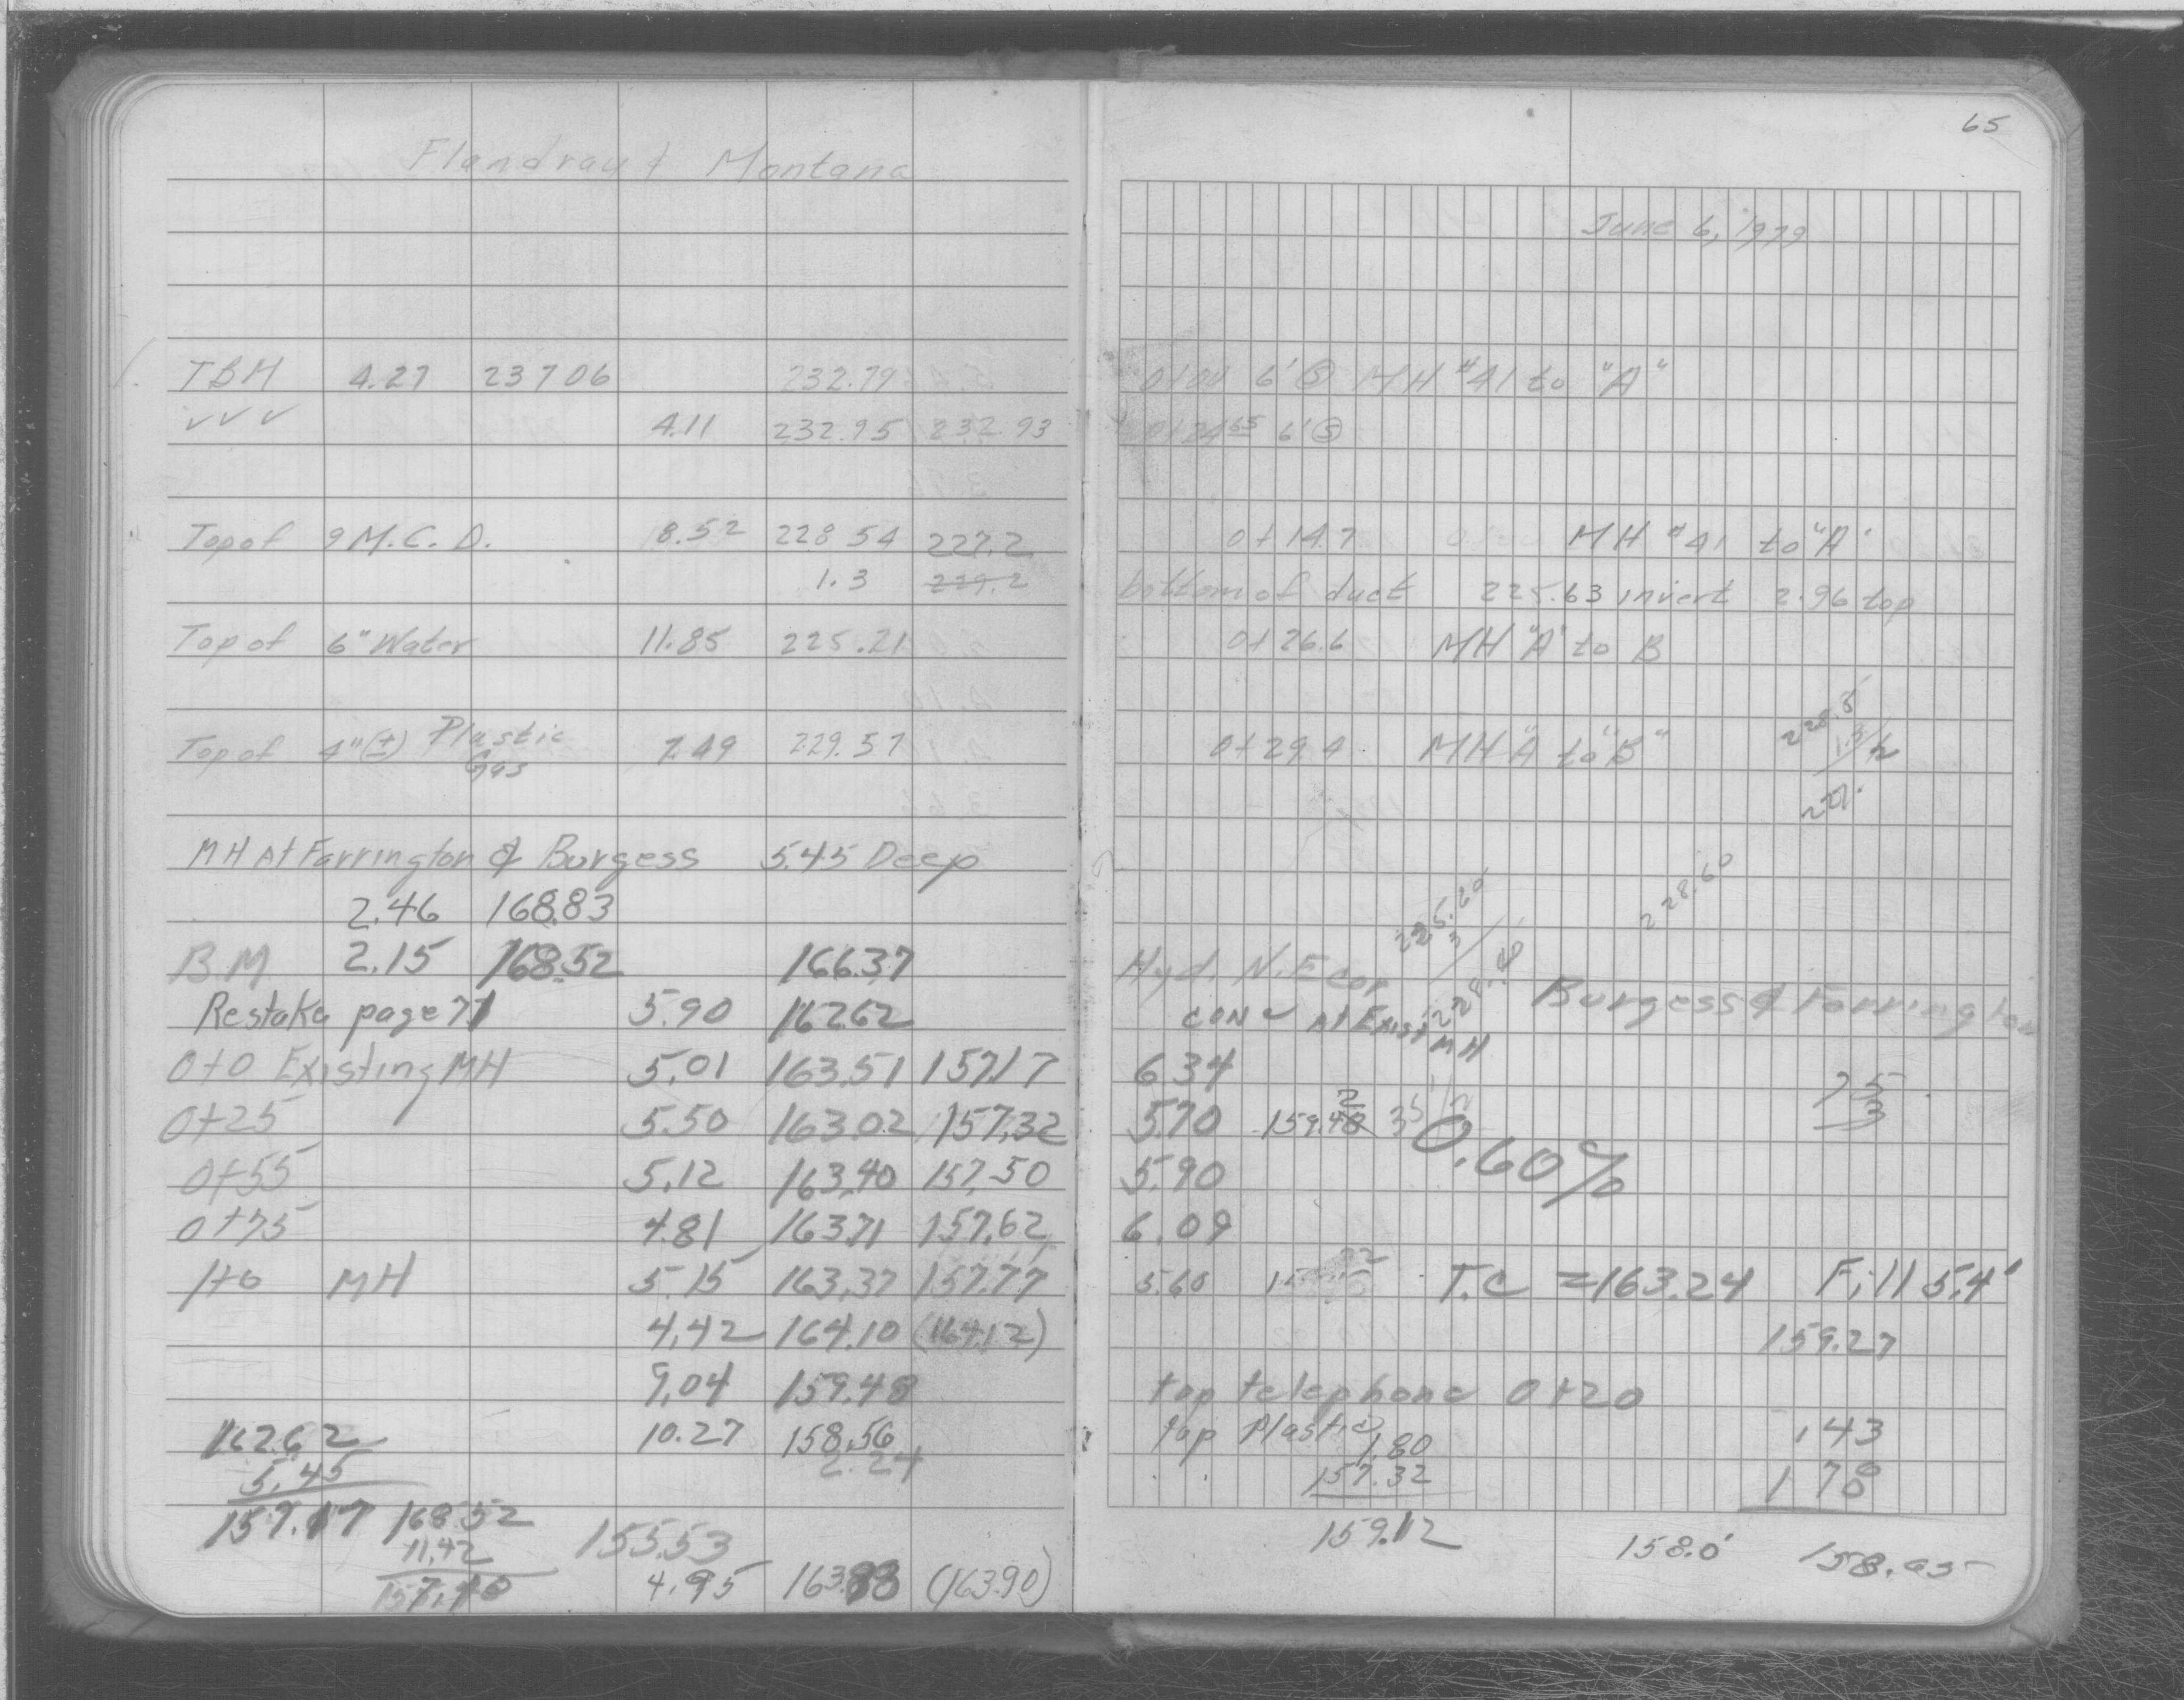 65
Flandrau & Montana
June 6, 1979
TBM 4.27 237.06 232.79 0+00 6' Ⓢ MH #41 to "A"
✓ ✓ ✓ 4.11 232.95 232.93 6' Ⓢ
Top of 9 M.C.D. 8.52 228.54 227.2 0+14.7 MH #41 to "A"
1.3 bottom of duct 225.63 invert 2.96 top
Top of 6" Water 11.85 225.21 0+26.6 MH "A" to B
Top of 4"(±) Plastic Gas 7.49 229.57 0+29.4 MH "A" to "B"
MH At Farrington & Burgess 5.45 Deep
228.60
2.46 168.83
B.M. 2.15 168.52 166.37 Hyd. N.E cor Burgess & Farrington
Restake page 71 5.90 162.62 CONC At Exist MH
0+0 Existing MH 5.01 163.51 157.17 6.34
0+25 5.50 163.02 157.32 5.70 0.60%
0+55 5.12 163.40 157.50 5.90
0+75 4.81 163.71 157.62 6.09
1+0 MH 5.15 163.37 157.77 5.60 T.C = 163.24 Fill 5.4'
4.42 164.10 (164.12) 159.27
9.04 159.48 top telephone 0+20
10.27 158.56 top Plastic 1.80 .43
2.24
162.62
5.45 157.32 1 78
157.17 168.52 155.53 159.12 158.0' 158.95
11.42
157.10 4.95 163.88 (163.90)